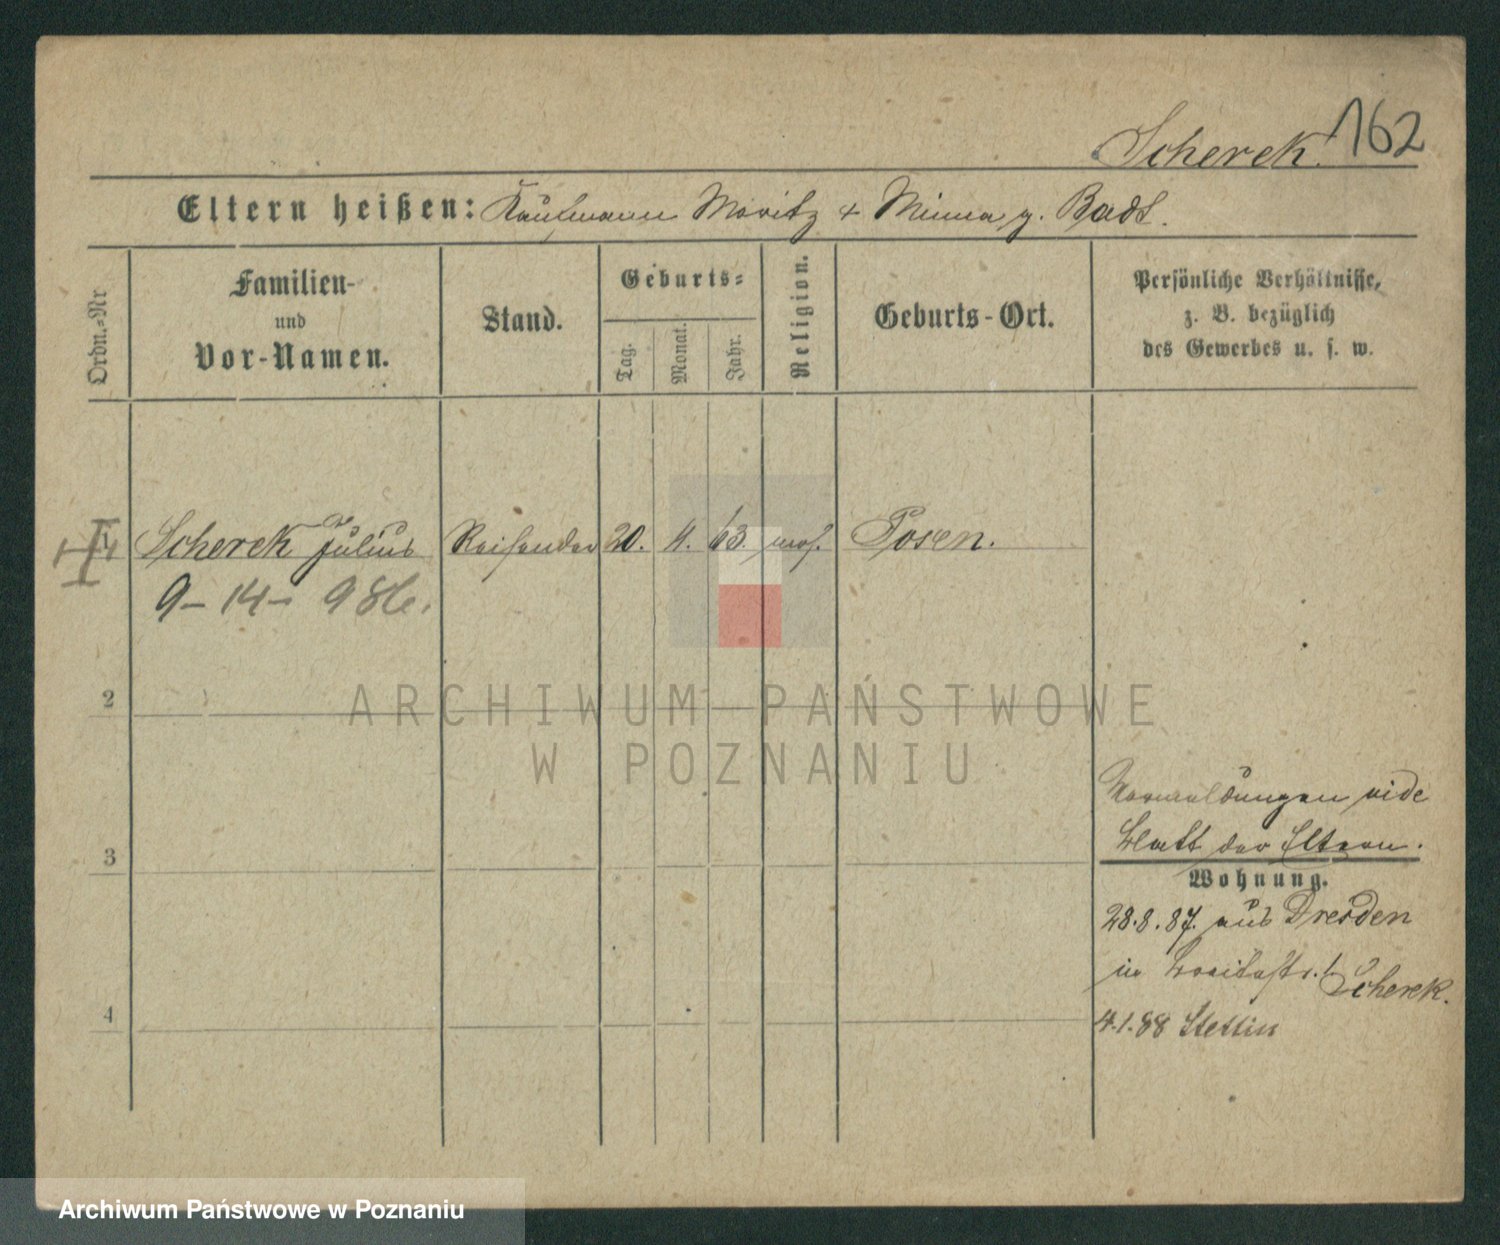 Scherek. 162
Eltern heißen: Kaufmann Moritz + Minna g. Badt.
Ordn.-Nr
Familien-
und
Vor-Namen.
Stand.
Geburts-
Tag.
Monat.
Jahr.
Religion.
Geburts-Ort.
Persönliche Verhältnisse,
z. B. bezüglich
des Gewerbes u. s. w.
1 Scherek Julius Reisender 20. 4. 63 mos. Posen.
9-14-986.
2
ARCHIWUM PAŃSTWOWE
W POZNANIU
Vormeldungen vide
3 Blatt der Eltern.
Wohnung.
28.8.87. aus Dresden
in Breitestr. b/ Scherek.
4 4.1.88 Stettin
Archiwum Państwowe w Poznaniu